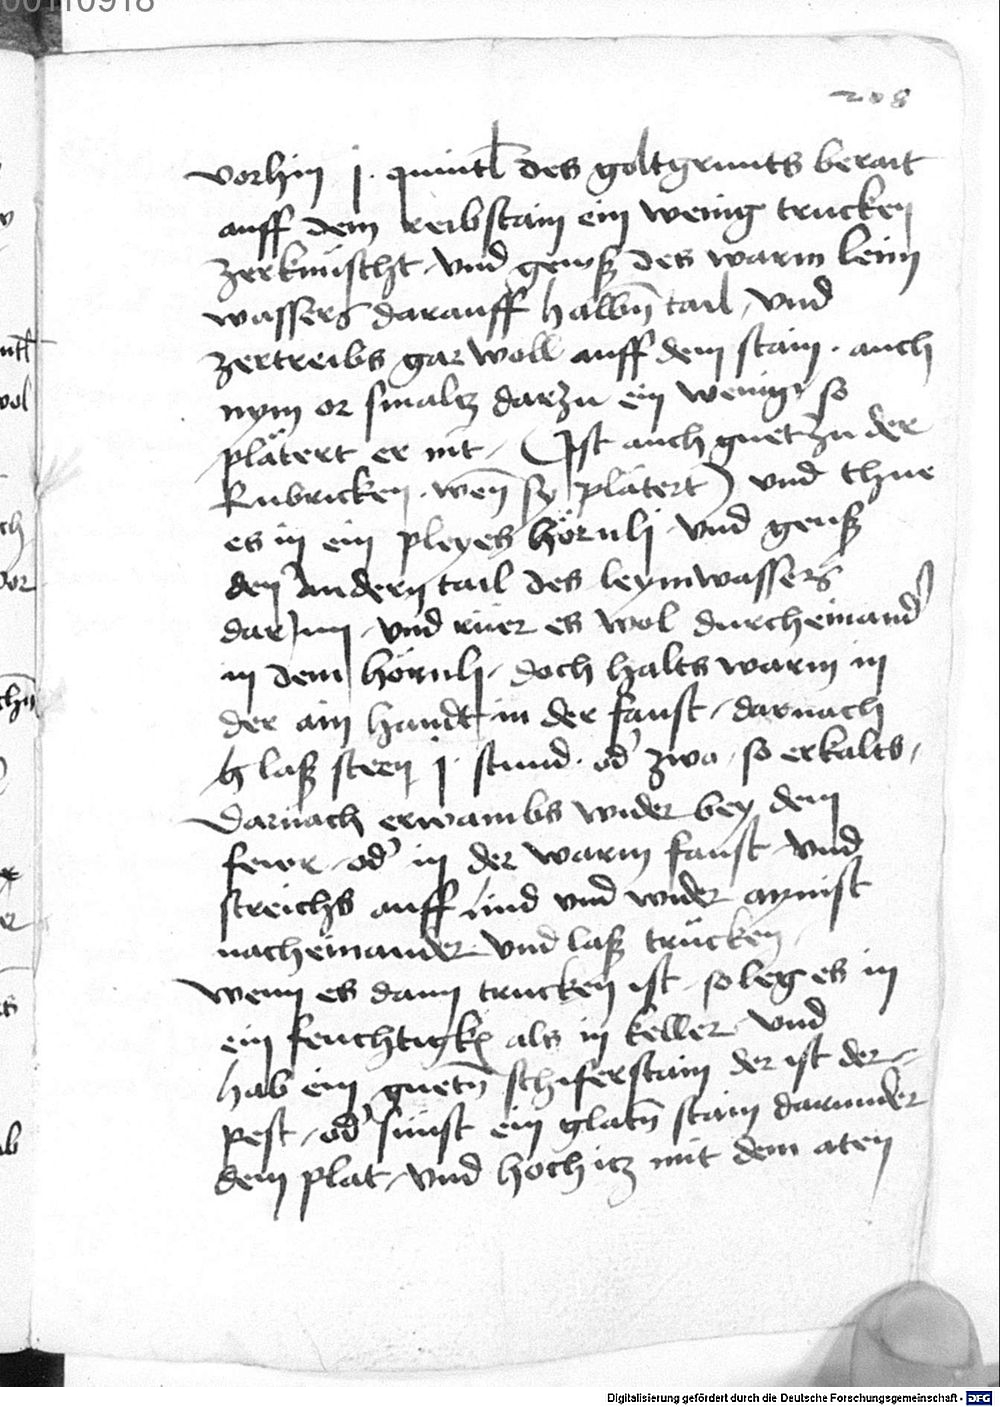 00110918
208
vorhin j. quintl des goltgrunts berait
auff dem reibstain ein wenig trucken
zerknüscht und geuß des warm leim
wassers darauff halbn tail, und
zertreibs gar woll auff dem stain. auch
nym or smaltz darzu ein wenig so
plätert er nit, (Ist auch guet zu der
Rubricken. wen sy plätert) und thue
es in ein pleyes hörnli und geuß
den andern tail des leymwassers
darinn, und rüer es wol durcheinand
in dem hörnli, doch halts warm in
der ain handt in der faust, darnach
laß steen j. stund. od zwo, so erkalts,
Darnach erwambs wider bey dem
fewr, od in der warm faust und
streichs auff lind und wider aynist
nacheinander und laß trücken,
Wenn es dann trucken ist, so leg es in
ein feuchtigk als in keller und
hab ein guetn schiferstain der ist der
pest, od sunst ein glatn stain darunder
dem plat, und hoch itz mit dem aten
Digitalisierung gefördert durch die Deutsche Forschungsgemeinschaft - DFG